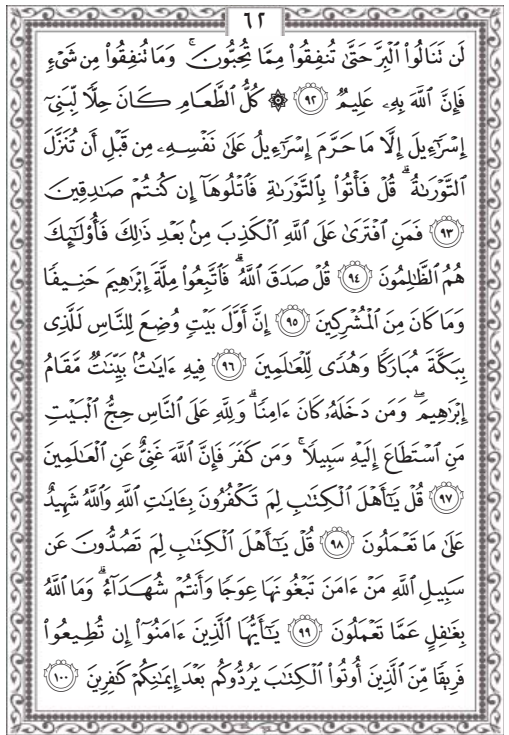 ٦٢
لَن تَنَالُوا۟ ٱلْبِرَّ حَتَّىٰ تُنفِقُوا۟ مِمَّا تُحِبُّونَ ۚ وَمَا تُنفِقُوا۟ مِن شَىْءٍ
فَإِنَّ ٱللَّهَ بِهِۦ عَلِيمٌ ٩٢ ۞ كُلُّ ٱلطَّعَامِ كَانَ حِلًّا لِّبَنِىٓ
إِسْرَٰٓءِيلَ إِلَّا مَا حَرَّمَ إِسْرَٰٓءِيلُ عَلَىٰ نَفْسِهِۦ مِن قَبْلِ أَن تُنَزَّلَ
ٱلتَّوْرَىٰةُ ۗ قُلْ فَأْتُوا۟ بِٱلتَّوْرَىٰةِ فَٱتْلُوهَآ إِن كُنتُمْ صَـٰدِقِينَ
٩٣ فَمَنِ ٱفْتَرَىٰ عَلَى ٱللَّهِ ٱلْكَذِبَ مِنۢ بَعْدِ ذَٰلِكَ فَأُو۟لَـٰٓئِكَ
هُمُ ٱلظَّـٰلِمُونَ ٩٤ قُلْ صَدَقَ ٱللَّهُ ۗ فَٱتَّبِعُوا۟ مِلَّةَ إِبْرَٰهِيمَ حَنِيفًا
وَمَا كَانَ مِنَ ٱلْمُشْرِكِينَ ٩٥ إِنَّ أَوَّلَ بَيْتٍ وُضِعَ لِلنَّاسِ لَلَّذِى
بِبَكَّةَ مُبَارَكًا وَهُدًى لِّلْعَـٰلَمِينَ ٩٦ فِيهِ ءَايَـٰتٌۢ بَيِّنَـٰتٌ مَّقَامُ
إِبْرَٰهِيمَ ۖ وَمَن دَخَلَهُۥ كَانَ ءَامِنًا ۗ وَلِلَّهِ عَلَى ٱلنَّاسِ حِجُّ ٱلْبَيْتِ
مَنِ ٱسْتَطَاعَ إِلَيْهِ سَبِيلًا ۚ وَمَن كَفَرَ فَإِنَّ ٱللَّهَ غَنِىٌّ عَنِ ٱلْعَـٰلَمِينَ
٩٧ قُلْ يَـٰٓأَهْلَ ٱلْكِتَـٰبِ لِمَ تَكْفُرُونَ بِـَٔايَـٰتِ ٱللَّهِ وَٱللَّهُ شَهِيدٌ
عَلَىٰ مَا تَعْمَلُونَ ٩٨ قُلْ يَـٰٓأَهْلَ ٱلْكِتَـٰبِ لِمَ تَصُدُّونَ عَن
سَبِيلِ ٱللَّهِ مَنْ ءَامَنَ تَبْغُونَهَا عِوَجًا وَأَنتُمْ شُهَدَآءُ ۗ وَمَا ٱللَّهُ
بِغَـٰفِلٍ عَمَّا تَعْمَلُونَ ٩٩ يَـٰٓأَيُّهَا ٱلَّذِينَ ءَامَنُوٓا۟ إِن تُطِيعُوا۟
فَرِيقًا مِّنَ ٱلَّذِينَ أُوتُوا۟ ٱلْكِتَـٰبَ يَرُدُّوكُم بَعْدَ إِيمَـٰنِكُمْ كَـٰفِرِينَ ١٠٠